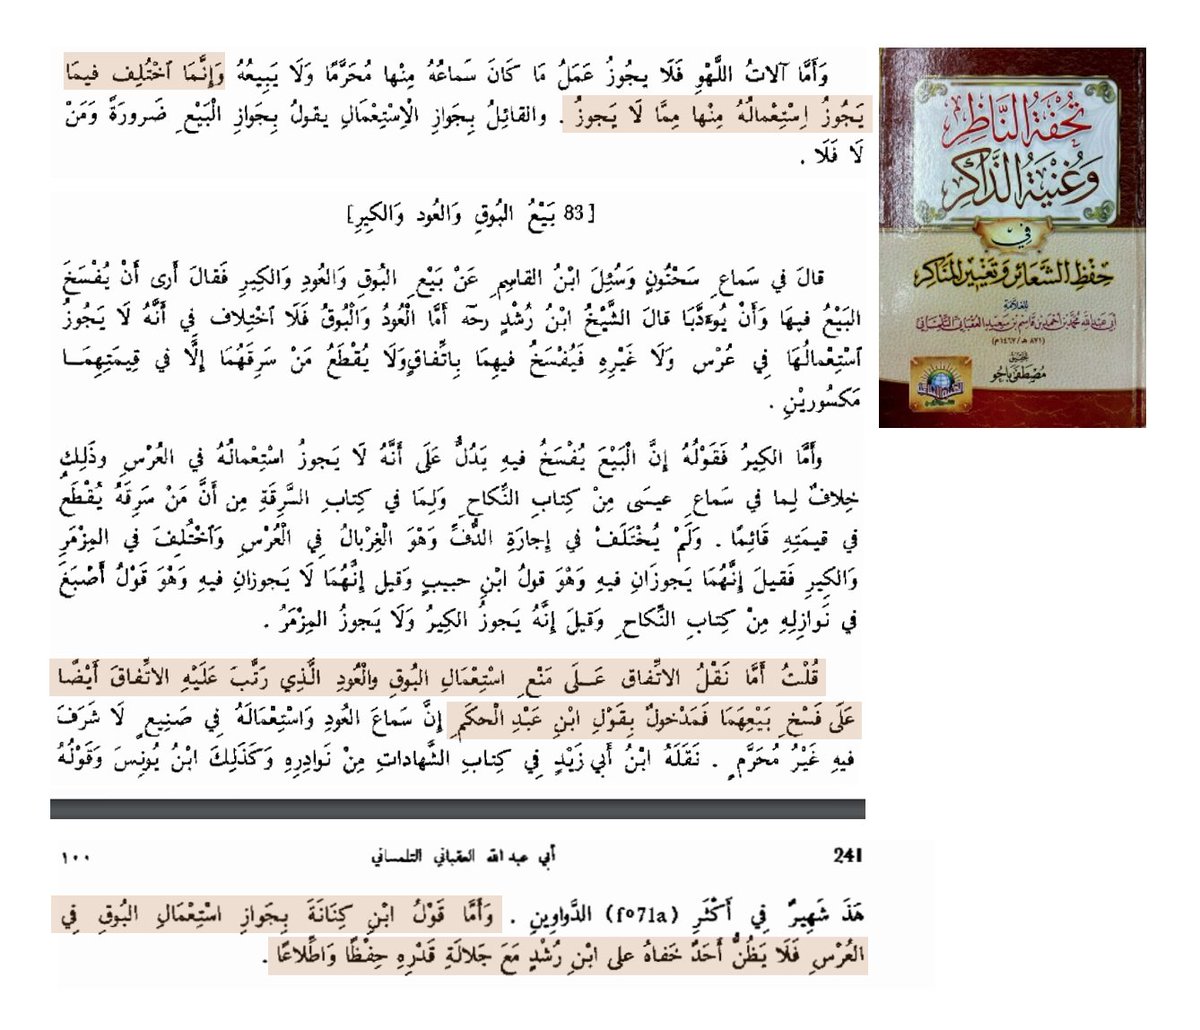 وَأَمَّا آلاتُ اللَّهْوِ فَلَا يجُوزُ عَمَلُ مَا كَانَ سَماعُهُ مِنْها مُحَرَّمًا وَلَا يَبِيعُهُ وَإِنَّمَا اَخْتُلِف فيمَا
يَجُوزُ اِسْتِعْمالُهُ مِنْها مِمَّا لَا يَجوزُ . والقائِلُ بِجَوازِ الْإِسْتِعْمَالِ يقولُ بِجَوازِ الْبَيْعِ ضَرورَةً وَمَنْ
لَا فَلَا .
[83 بَيْعُ البُوقِ وَالعُود وَالكِيرِ]
قالَ في سَماعِ سَحْنُونٍ وَسُئِلَ ابْنُ القاسِمِ عَنْ بَيْعِ البُوقِ وَالعُودِ وَالكِيرِ فَقالَ أَرى أَنْ يُفْسَخَ
البَيْعُ فيهَا وَأَنْ يُوءدَّبَا قالَ الشَّيْخُ ابْنُ رُشْدٍ رحَه أَمَّا العُودُ وَالْبُوقُ فَلَا اَخْتِلاف في أَنَّهُ لَا يَجُوزُ
اَسْتِعْمالُهَا فِي عُرْس وَلَا غَيْرِهِ فَيُفْسَخُ فيهِمَا بِاتِّفاقٍ وَلَا يُقْطَعُ مَنْ سَرَقَهُمَا إِلَّا في قيمَتِهِمَـا
مَكسُوريْنِ .
وَأَمَّا الكِيرُ فَقَوْلُهُ إِنَّ الْبَيْعَ يُفْسَخُ فيهِ يَدُلُّ عَلَى أَنَّهُ لَا يَجوزُ اسْتِعْمالُهُ في العُرْسِ وذَلِكَ
خِلافٌ لِما في سَماعِ عيسَى مِنْ كِتابِ النِّكاحِ وَلِمَا في كِتابِ السَّرِقَةِ مِن أَنَّ مَنْ سَرِقَهُ يُقْطَعُ
في قيمَتِهِ قَائِمًا . وَلَمْ يُخْتَلَفْ في إِجارَةِ الدُّفِّ وَهْوَ الْغِرْبالُ فِي الْعُرْسِ وَاَخْتُلِفَ في المِزْمَرِ
وَالكِيرِ فَقيلَ إِنَّهُمَا يَجوزَانِ فيهِ وَهْوَ قولُ ابْنِ حبيبٍ وَقيلِ إِنَّهُمَا لَا يَجوزانِ فيهِ وَهْوَ قَوْلُ أَصْبَغَ
في نَوازِلِهِ مِنْ كِتابِ النِّكاحِ وَقيلَ إِنَّهُ يَجوزُ الكِيرُ وَلَا يَجوزُ المِزْمَرُ .
قُلْتُ أَمَّا نَقْلُ الاتِّفاق عَــلَى مَنْعِ اسْتِعْمَالِ البُوقِ والْعُودِ الَّذِي رَتَّبَ عَلَيْهِ الاتِّفاقَ أَيْضًا
عَلَى فَسْخِ بَيْعِهَمَا فَمَدْخولٌ بِقَوْلِ ابْنِ عَبْدِ الْحكَمِ إِنَّ سَماعَ العُودِ وَاسْتِعْمَالَهُ في صَنِيعٍ لَا شَرَفَ
فيهِ غَيْرُ مُحَرَّمٍ . نَقَلَهُ ابْنُ أَبي زَيْدٍ في كِتابِ الشَّهاداتِ مِنْ نَوادِرِهِ وَكَذَلِكَ ابْنُ يُونِسَ وَقَوْلُهُ
241 أبي عبد الله العقباني التلمساني ١٠٠
هَذَ شَهِيرٌ فِي أَكْثَرِ (f°71a) الدَّواوِينِ . وَأَمَّا قَوْلُ ابْنِ كِنَانَةَ بِجَوازِ اسْتِعْمَالِ البُوقِ فِي
العُرْسِ فَلَا يَظُنُّ أَحَدٌ خَفاهُ على ابْنِ رُشْدٍ مَعَ جَلالَةِ قَدْرِهِ حِفْظًا وَاطِّلاعًا .
تُحْفَةُ النَّاظِرِ
وَغُنْيَةُ الذَّاكِرِ
فِي
حِفْظِ الشَّعَائِرِ وَتَغْيِيرِ المَنَاكِرِ
للعلّامة
أبي عبد الله محمد بن أحمد بن قاسم بن سعيد العقباني التلمساني
(٨٧١ هـ / ١٤٦٧م)
تحقيق
مصطفى باجو